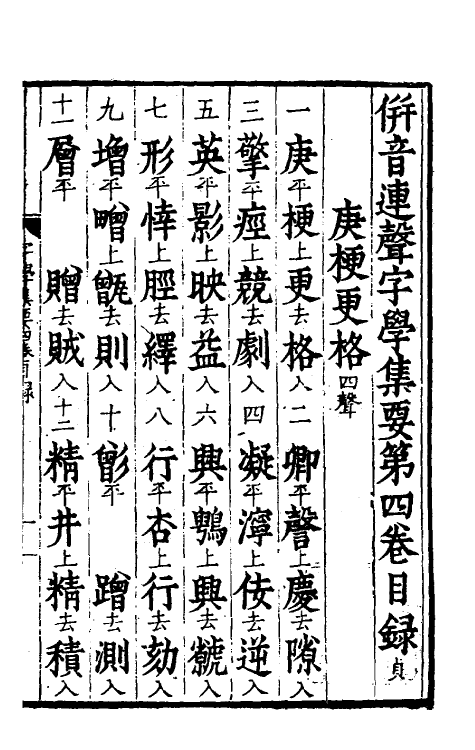 倂音連聲字學集要第四卷目録貞
庚梗更格四聲
一庚平梗上更去格入二卿平謦上慶去隙入
三擎平痙上競去劇入四凝平濘上佞去逆入
五英平影上映去益入六興平鶃上興去虩入
七形平悻上脛去繹入八行平杏上行去劾入
九增平矰上甑去則入十彰平蹭去測入
十一層平贈去賊入十二精平井上精去積入